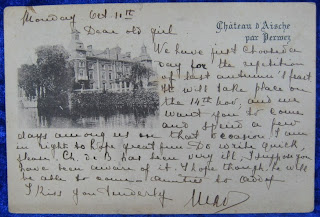 Monday Oct 11th
Château d'Aische
par Perwez
Dear old girl
We have just choosed a
day for the repetition
of last autumn's feast
It will take place on
the 14th nov. and we
want you to come
and spend a few
days among us on that occasion. I am
in right to hope great fun. Do write quick,
please. Ch. de B. has been very ill. I suppose you
have been aware of it. I hope though he will
be able to come
I kiss you tenderly